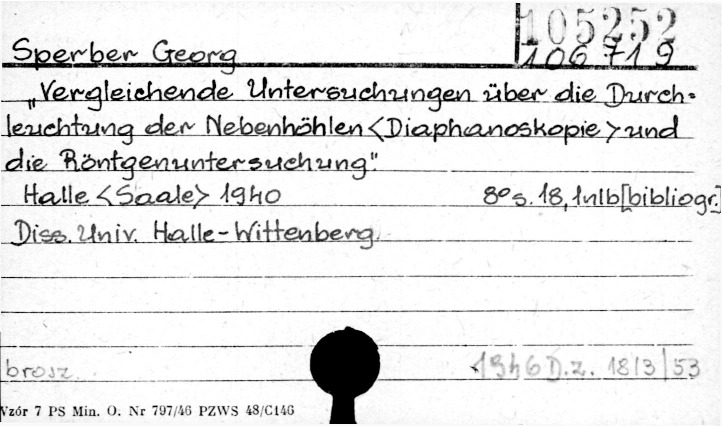 105252
Sperber Georg 106719
„Vergleichende Untersuchungen über die Durch=
leuchtung der Nebenhöhlen <Diaphanoskopie> und
die Röntgenuntersuchung".
Halle <Saale> 1940 8° s. 18, 1nlb [bibliogr.]
Diss. Univ. Halle-Wittenberg.
brosz. 1946 D.z. 18/3/53
Wzór 7 PS Min. O. Nr 797/46 PZWS 48/C146